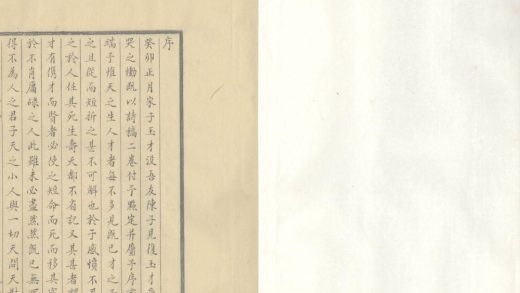 序
癸卯正月宋子玉才沒吾友陳子見復玉才
哭之慟既以詩稿二卷付予點定并屬予序
端予惟天之生人才者每不多見既已才之
之且從而短折之甚不可解也於予感憤不
之於人任其死生壽夭都不省記又其甚者
才有儁才而賢者必使之短命而死而移其
於不肖庸碌之人此雖未必盡然然既已無
得不為人之君子天之小人與一切天問天